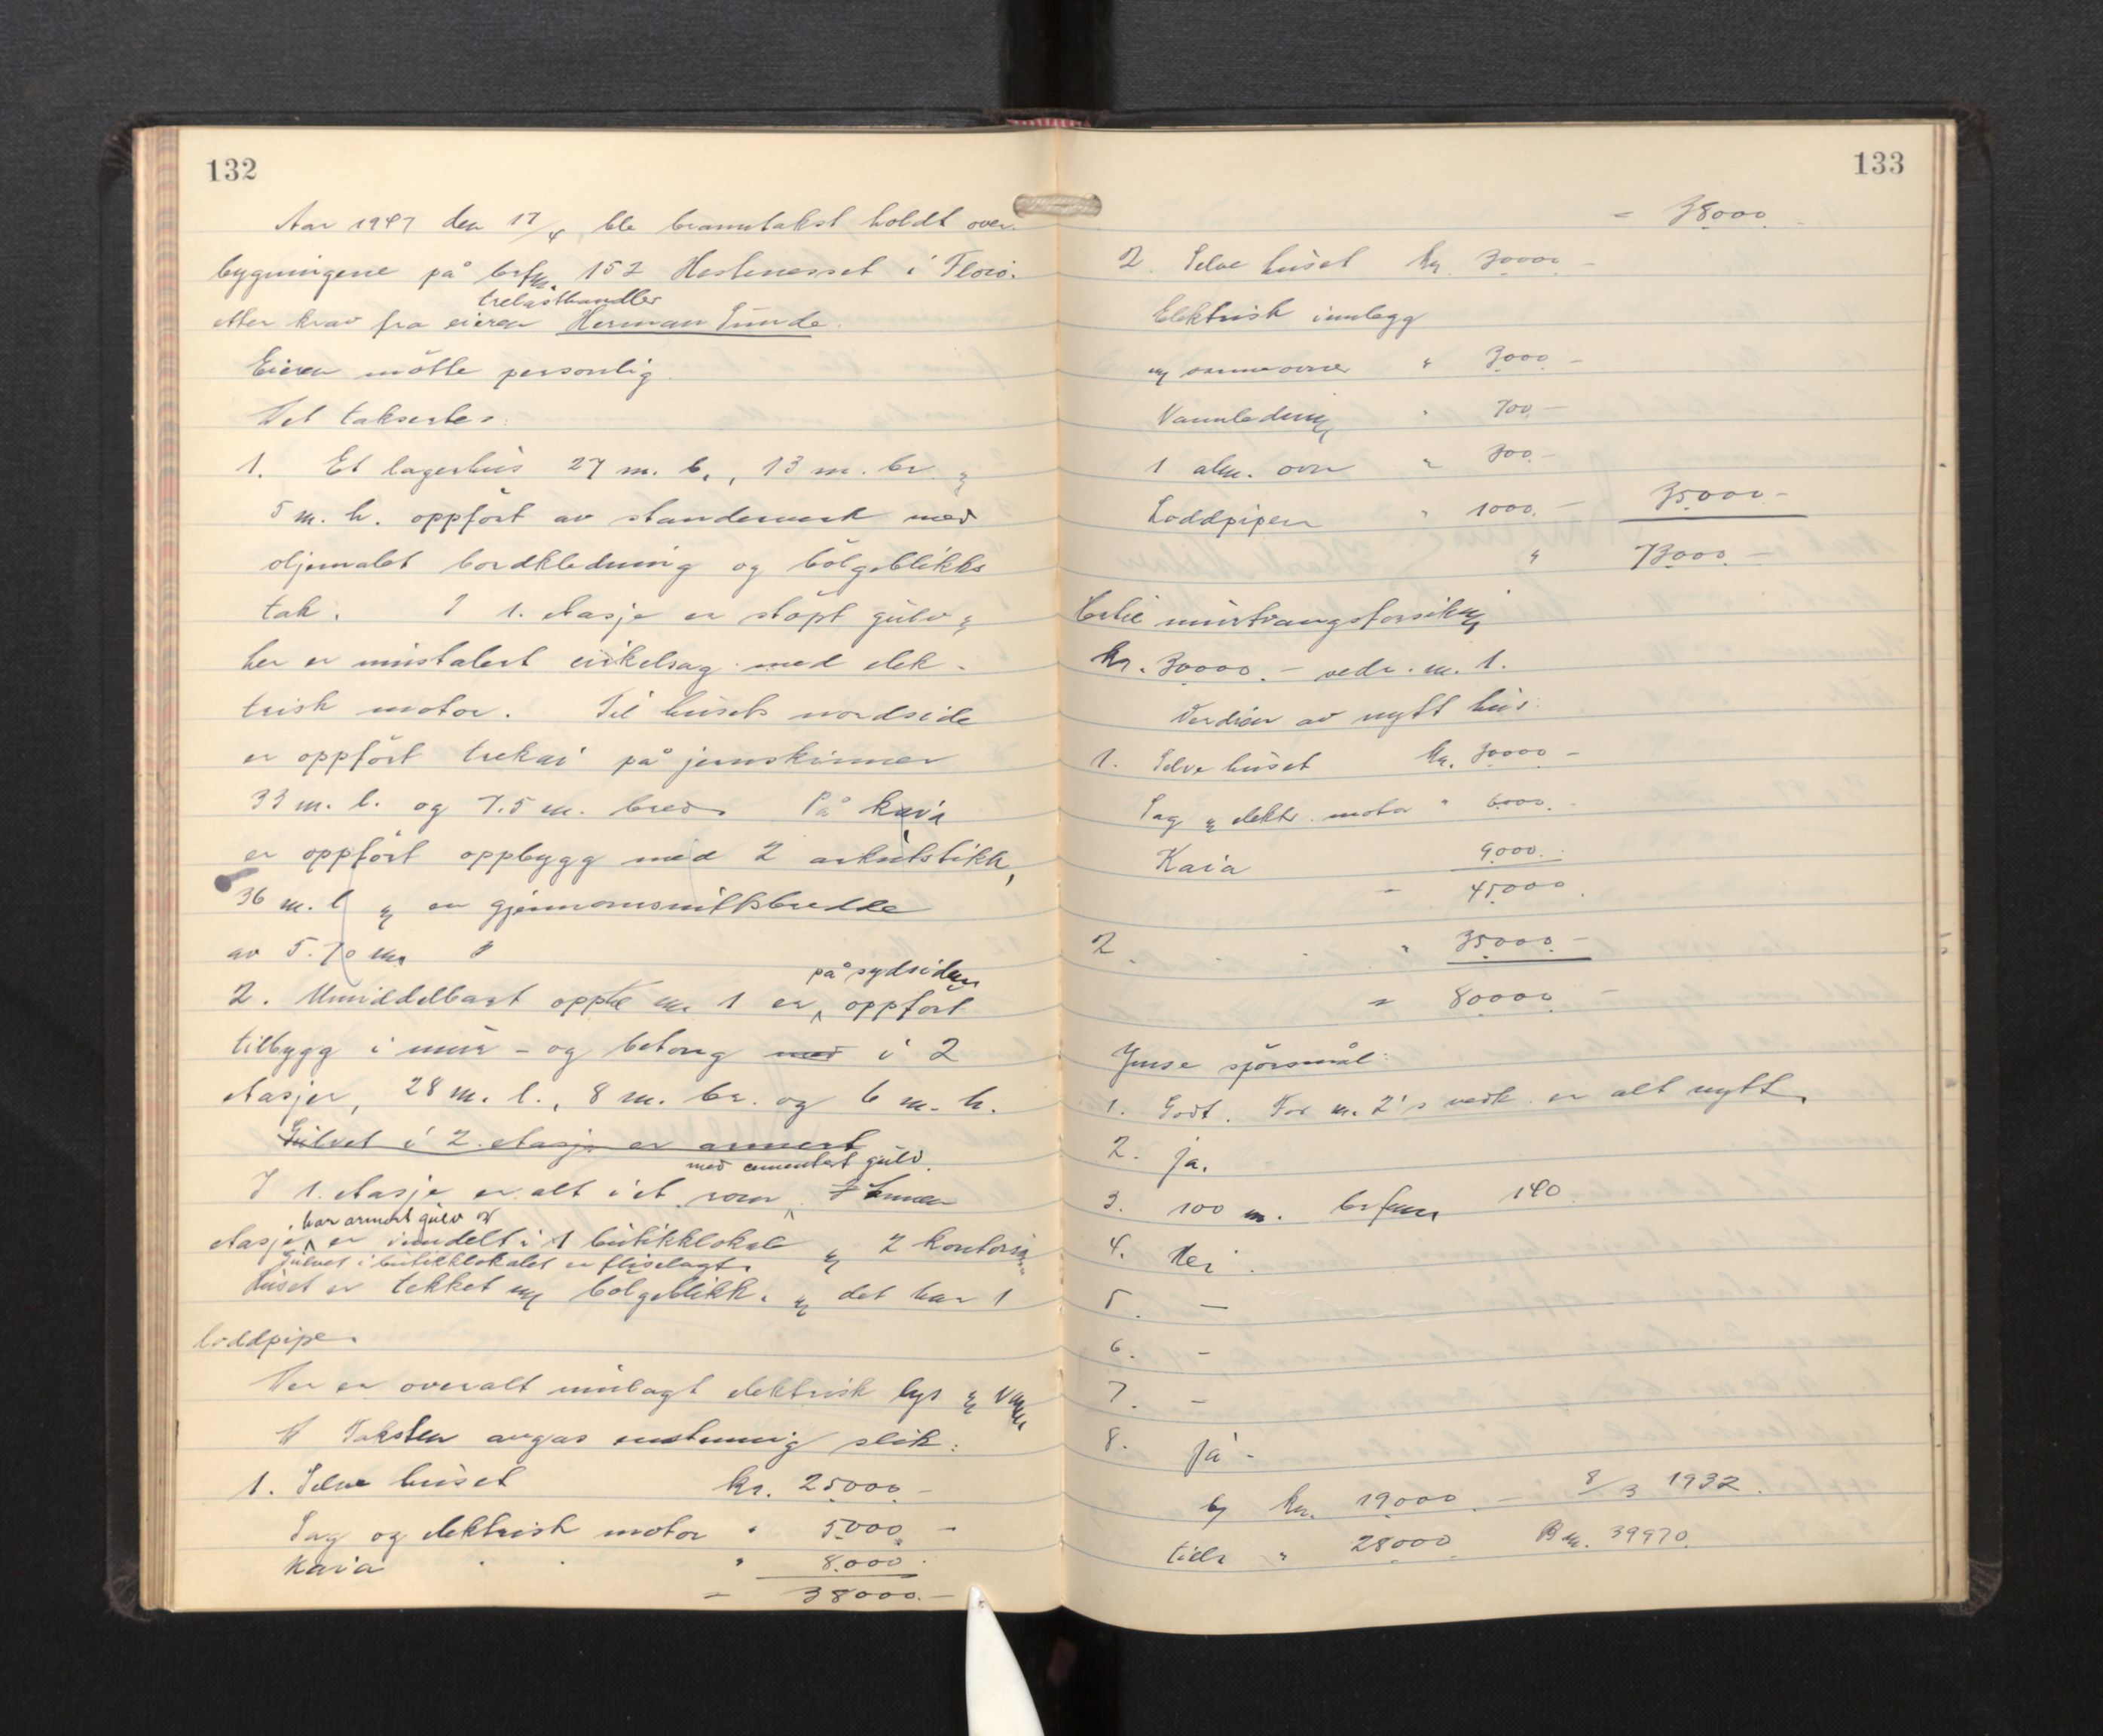 132
Aar 1947 den 17/4 ble branntakst holdt over
bygningene på brfnr. 152 Hestenesset i Florø.
trelasthandler
etter krav fra eieren Herman Sunde.
Eieren møtte personlig.
Det takseertes:
1. Et lagerhus 27 m. l., 13 m. br. og
5 m. h. oppført av standerverk med
oljemalet bordkledning og bølgeblikks
tak. I 1. etasje er støpt gulv og
her er innstalert cirkelsag med elek-
trisk motor. Til husets nordside
er oppført trekai på jernskinner
33 m. l. og 7.5 m. bred. På kaia
er oppført oppbygg med 2 arkutstikk,
36 m. l og en gjennomsnittsbredde
av 5.70 m.
på sydsiden
2. Umiddelbart opptil nr. 1 er oppført
tilbygg i mur- og betong med i 2
etasjer, 28 m. l., 8 m. br. og 6 m. h.
Gulvet i 2. etasje er armert
med cementert gulv.
I 1. etasje er alt i et rom. I annen
har armert gulv og
etasje er inndelt i 1 butikklokale og 2 kontorer
Gulvet i butikklokalet er fliselagt.
Huset er tekket med bølgeblikk. og det har 1
loddpipe.
Der er overalt innlagt elektrisk lys og vann
Taksten avgas enstemmig slik:
1. Selve huset kr. 25000.-
Sag og elektrisk motor " 5000 -
Kaia " 8.000.
= 38000.-
133
= 38000.-
2. Selve huset kr. 30000 -
Elektrisk innlegg
og varmeovner " 3000 -
Vannledning " 700.-
1 alm. ovn " 300.-
Loddpipen " 1000.- 35000.-
" 73000.-
kr. 30000.- vedr. nr. 1.
Verdien av nytt hus:
1. Selve huset kr. 30000 -
Sag og elektr. motor " 6000.-
Kaia 9000.-
- 45000.
2. " 35000 -
= 80000 -
Ymse spørsmål:
1. Godt. For nr. 2's vedk. er alt nytt.
2. ja.
3. 100 m. brfnr 140.
4. Nei.
5. -
6. -
7. -
8. ja -
kr. 19000.- 8/3 1932.
" 28000 B nr. 39970.